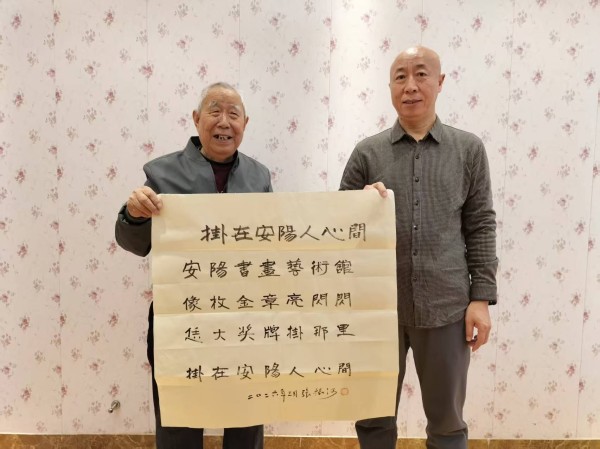 掛在安陽人心間
安陽書畫藝術館
像枚金章亮閃閃
大奖牌掛那里
掛在安陽人心間
二〇二六年